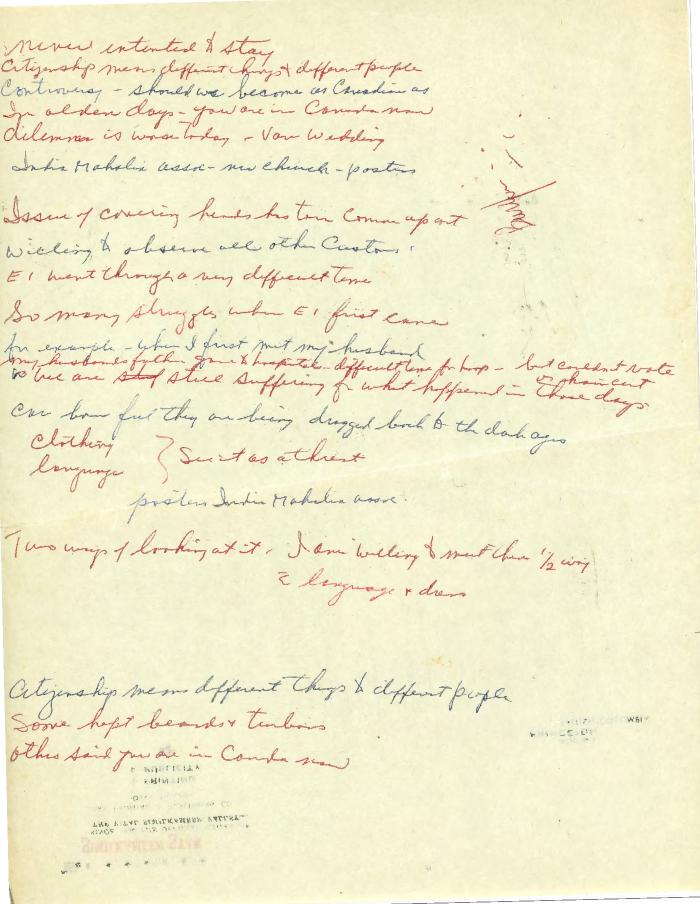 Never intented to stay
Citizenship means different things to different people
Controversy - should we become as Canadian as
In olden days - you are in Canada now
dilemma is worse today - Van Wedding
India Mahalia assoc - new church - posters
Issue of covering heads has torn Comm apart
Willing to observe all other Customs.
E I went through a very difficult time
So many struggles when E I first came
for example - when I first met my husband
my husbands father gone to hospital - difficult time for hosp - but couldn't vote
haircut
we are still suffering for what happened in those days
feel they are being dragged back to the dark ages
Clothing
language
See it as a threat
posters India Mahalia assoc.
Two ways of looking at it. I am willing to meet them 1/2 way
language & dress
Citizenship means different things to different people
Some kept beards & turbans
others said you are in Canada now
PUBLICITY
PRINTING
THE
SIMILKAMEEN STAR
PRINCETON